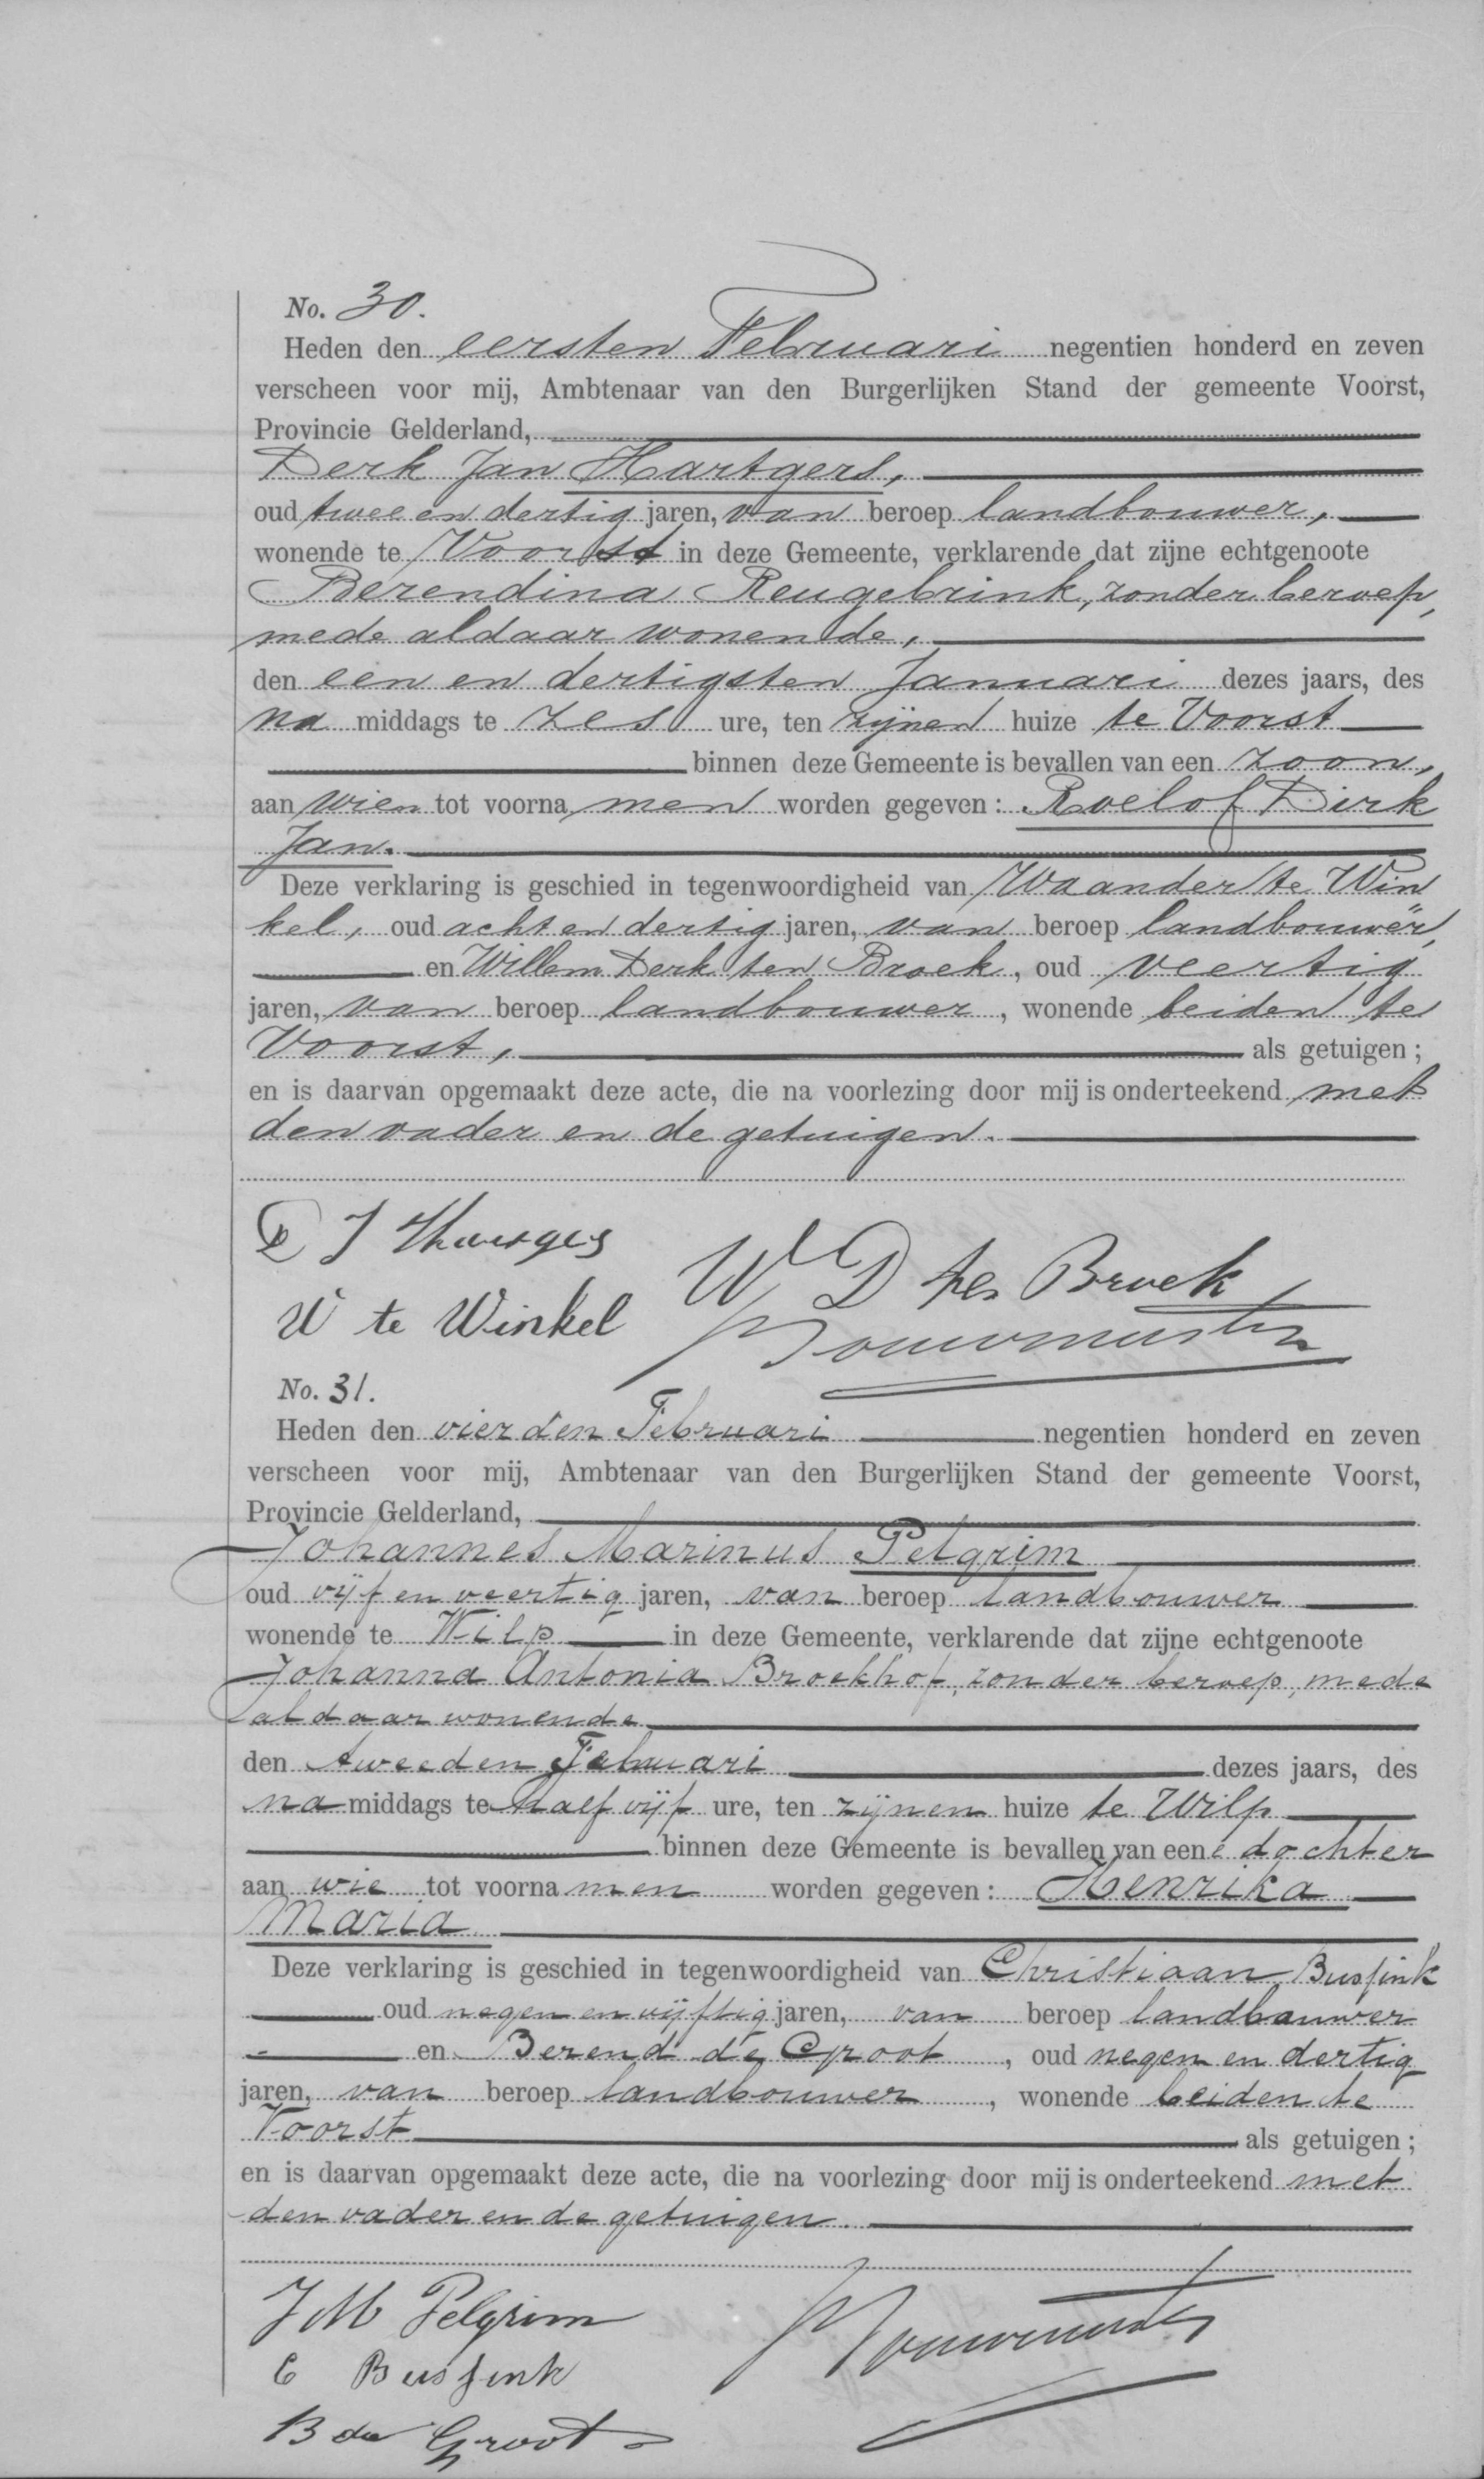 No. 30.
Heden den eersten Februari negentien honderd en zeven
verscheen voor mij, Ambtenaar van den Burgerlijken Stand der gemeente Voorst,
Provincie Gelderland,
Derk Jan Hartgers,
oud twee en dertig jaren, van beroep landbouwer,
wonende te Voorst in deze Gemeente, verklarende dat zijne echtgenoote
Berendina Reugebrink, zonder beroep,
mede aldaar wonende,
den een en dertigsten Januari dezes jaars, des
na middags te zes ure, ten zijnen huize te Voorst
binnen deze Gemeente is bevallen van een zoon,
aan wien tot voorna men worden gegeven: Roelof Dirk
Jan.
Deze verklaring is geschied in tegenwoordigheid van Waander te Win
kel, oud acht en dertig jaren, van beroep landbouwer,
en Willem Derk ten Broek, oud veertig
jaren, van beroep landbouwer, wonende beiden te
Voorst, als getuigen;
en is daarvan opgemaakt deze acte, die na voorlezing door mij is onderteekend met
den vader en de getuigen.
D J
W D ten Broek
W te Winkel
Bouwmeester
No. 31.
Heden den vierden Februari negentien honderd en zeven
verscheen voor mij, Ambtenaar van den Burgerlijken Stand der gemeente Voorst,
Provincie Gelderland,
Johannes Marinus Pelgrim
oud vijf en veertig jaren, van beroep landbouwer
wonende te Wilp in deze Gemeente, verklarende dat zijne echtgenoote
Johanna Antonia Broekhof, zonder beroep, mede
aldaar wonende
den tweeden Februari dezes jaars, des
na middags te half vijf ure, ten zijnen huize te Wilp
binnen deze Gemeente is bevallen van eene dochter
aan wie tot voorna men worden gegeven: Henrika
Maria
Deze verklaring is geschied in tegenwoordigheid van Christiaan Bussink
oud negen en vijftig jaren, van beroep landbouwer
en Berend de Groot, oud negen en dertig
jaren, van beroep landbouwer, wonende beiden te
Voorst als getuigen;
en is daarvan opgemaakt deze acte, die na voorlezing door mij is onderteekend met
den vader en de getuigen.
J M Pelgrim
Bouwmeester
C Bussink
B de Groot